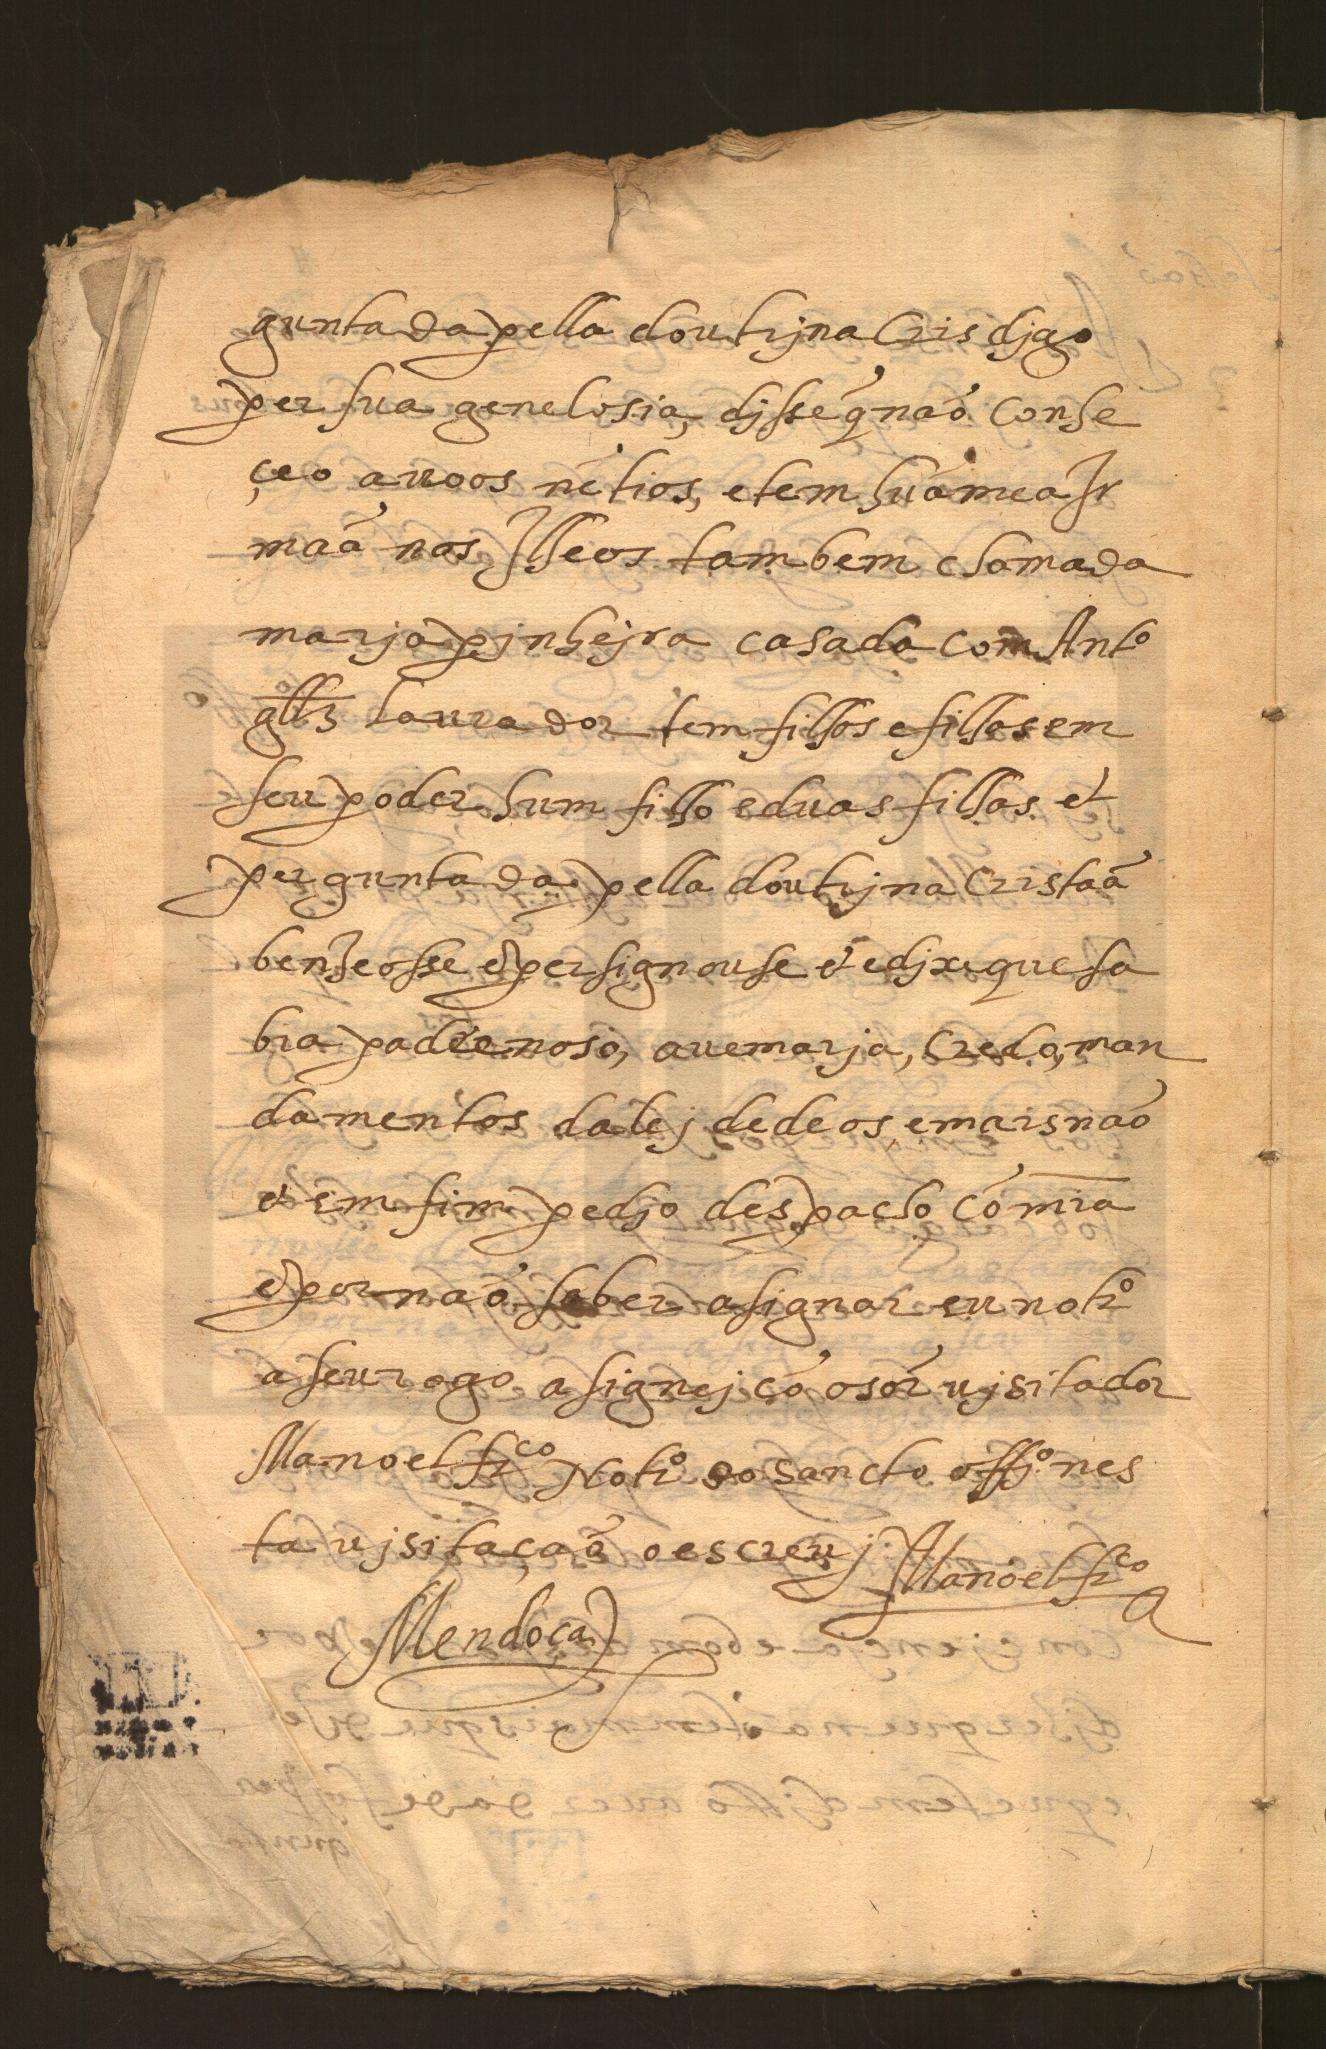 guntada pella doutrjna Cris djgo
per sua genelosia, djsse q̃ não conhe
çeo avoos nẽ tios, e tem huã mea Ir
maã nos Ilheos tambem chamada
marja pinhejra casada com Antº
glz̃ lavrador tem filhos e filhas em
seu poder hum filho e duas filhas. et
perguntada pella doutrjna Cristaã
benzeosse e persignouse et e djxe que sa
bia padre noso, ave marja, Credo, man
damentos da lej de deos, e mais não
et em fim pedjo despacho cõ mĩa
e por não saber asignar eu notrº
a seu rogo asignej cõ o sõr vjsitador
Manoel frco Notrº do sancto offjº nes
ta vjsitação o escrevj Manoel frco
Mendoça